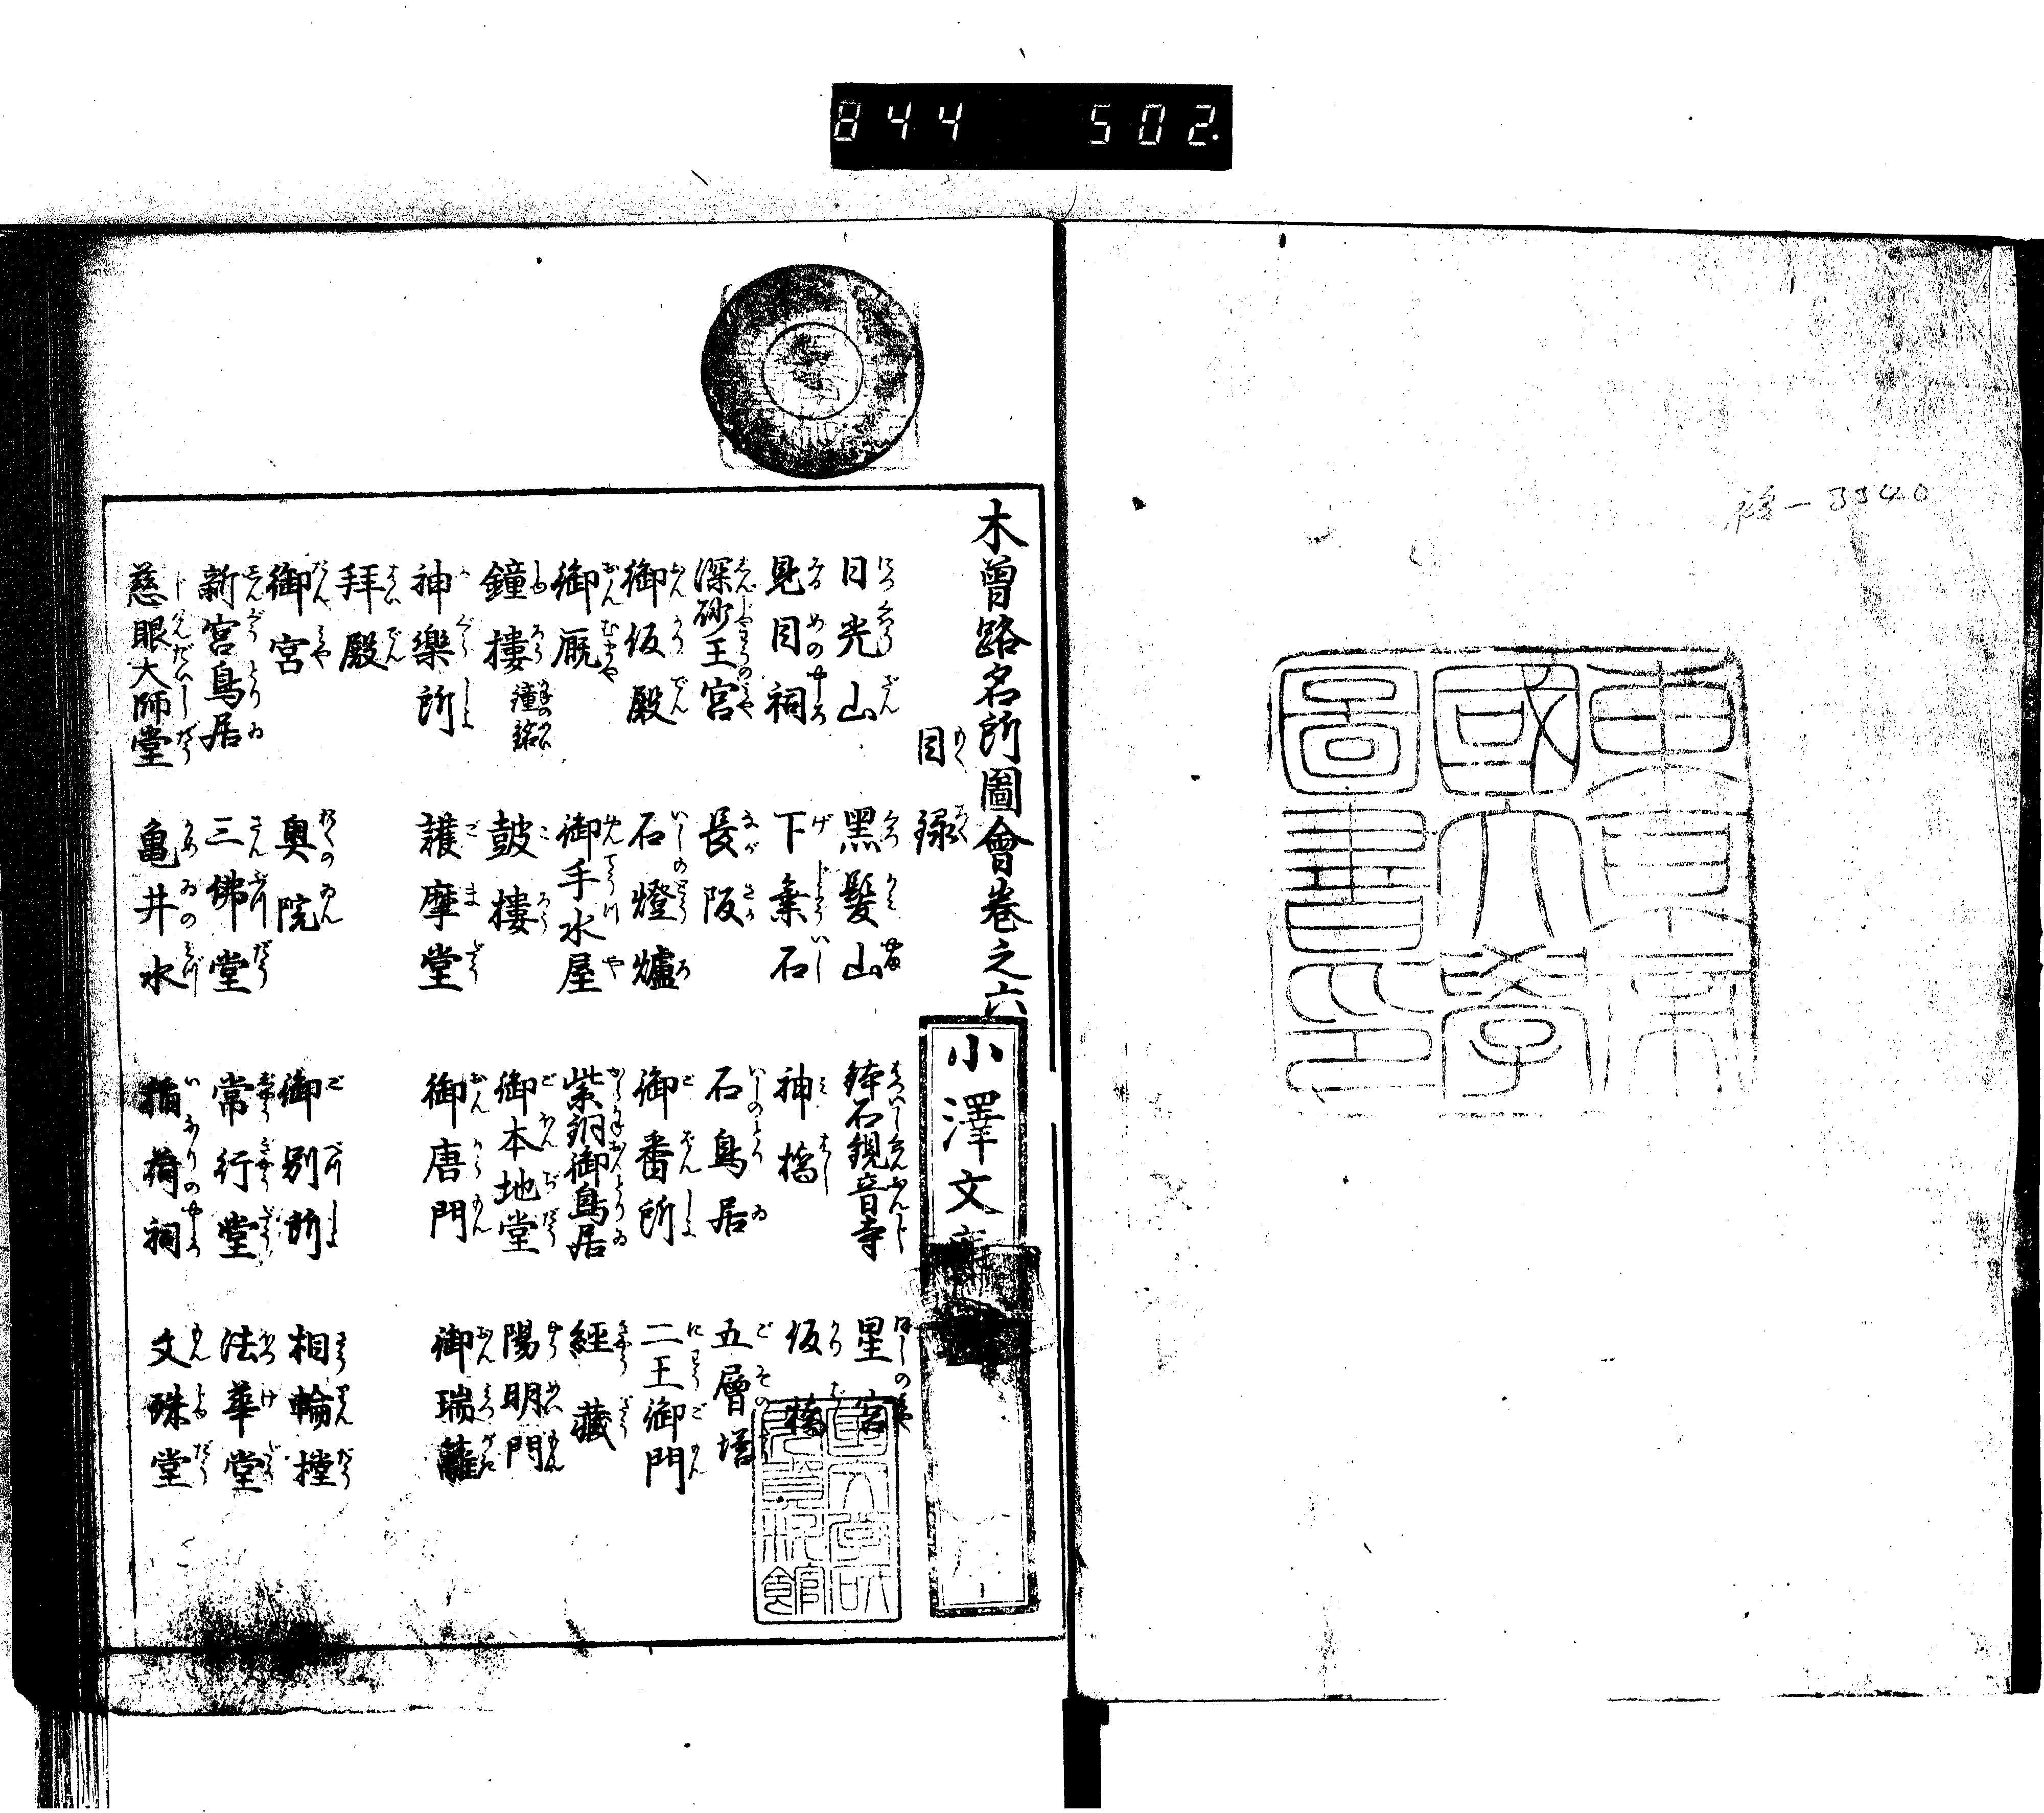 844 502.
-3340
東京帝
國大學
圖書印
木曾路名所圖會卷之六
小澤文庫
目録
日光山 黑髮山 鉢石観音寺 星宮
見目祠 下乗石 神橋 仮橋
深砂王宮 長阪 石鳥居 五層塔
御仮殿 石燈爐 御番所 二王御門
御厩 御手水屋 紫銅御鳥居 經藏
鐘樓 鐘銘 鼓樓 御本地堂 陽明門
神樂所 護摩堂 御唐門 御瑞籬
拜殿
御宮 奥院 御別所 相輪橖
新宮鳥居 三佛堂 常行堂 法華堂
慈眼大師堂 亀井水 稲荷祠 文珠堂